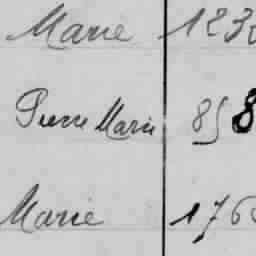 Marie 123
Pierre Marie 858
Marie 176